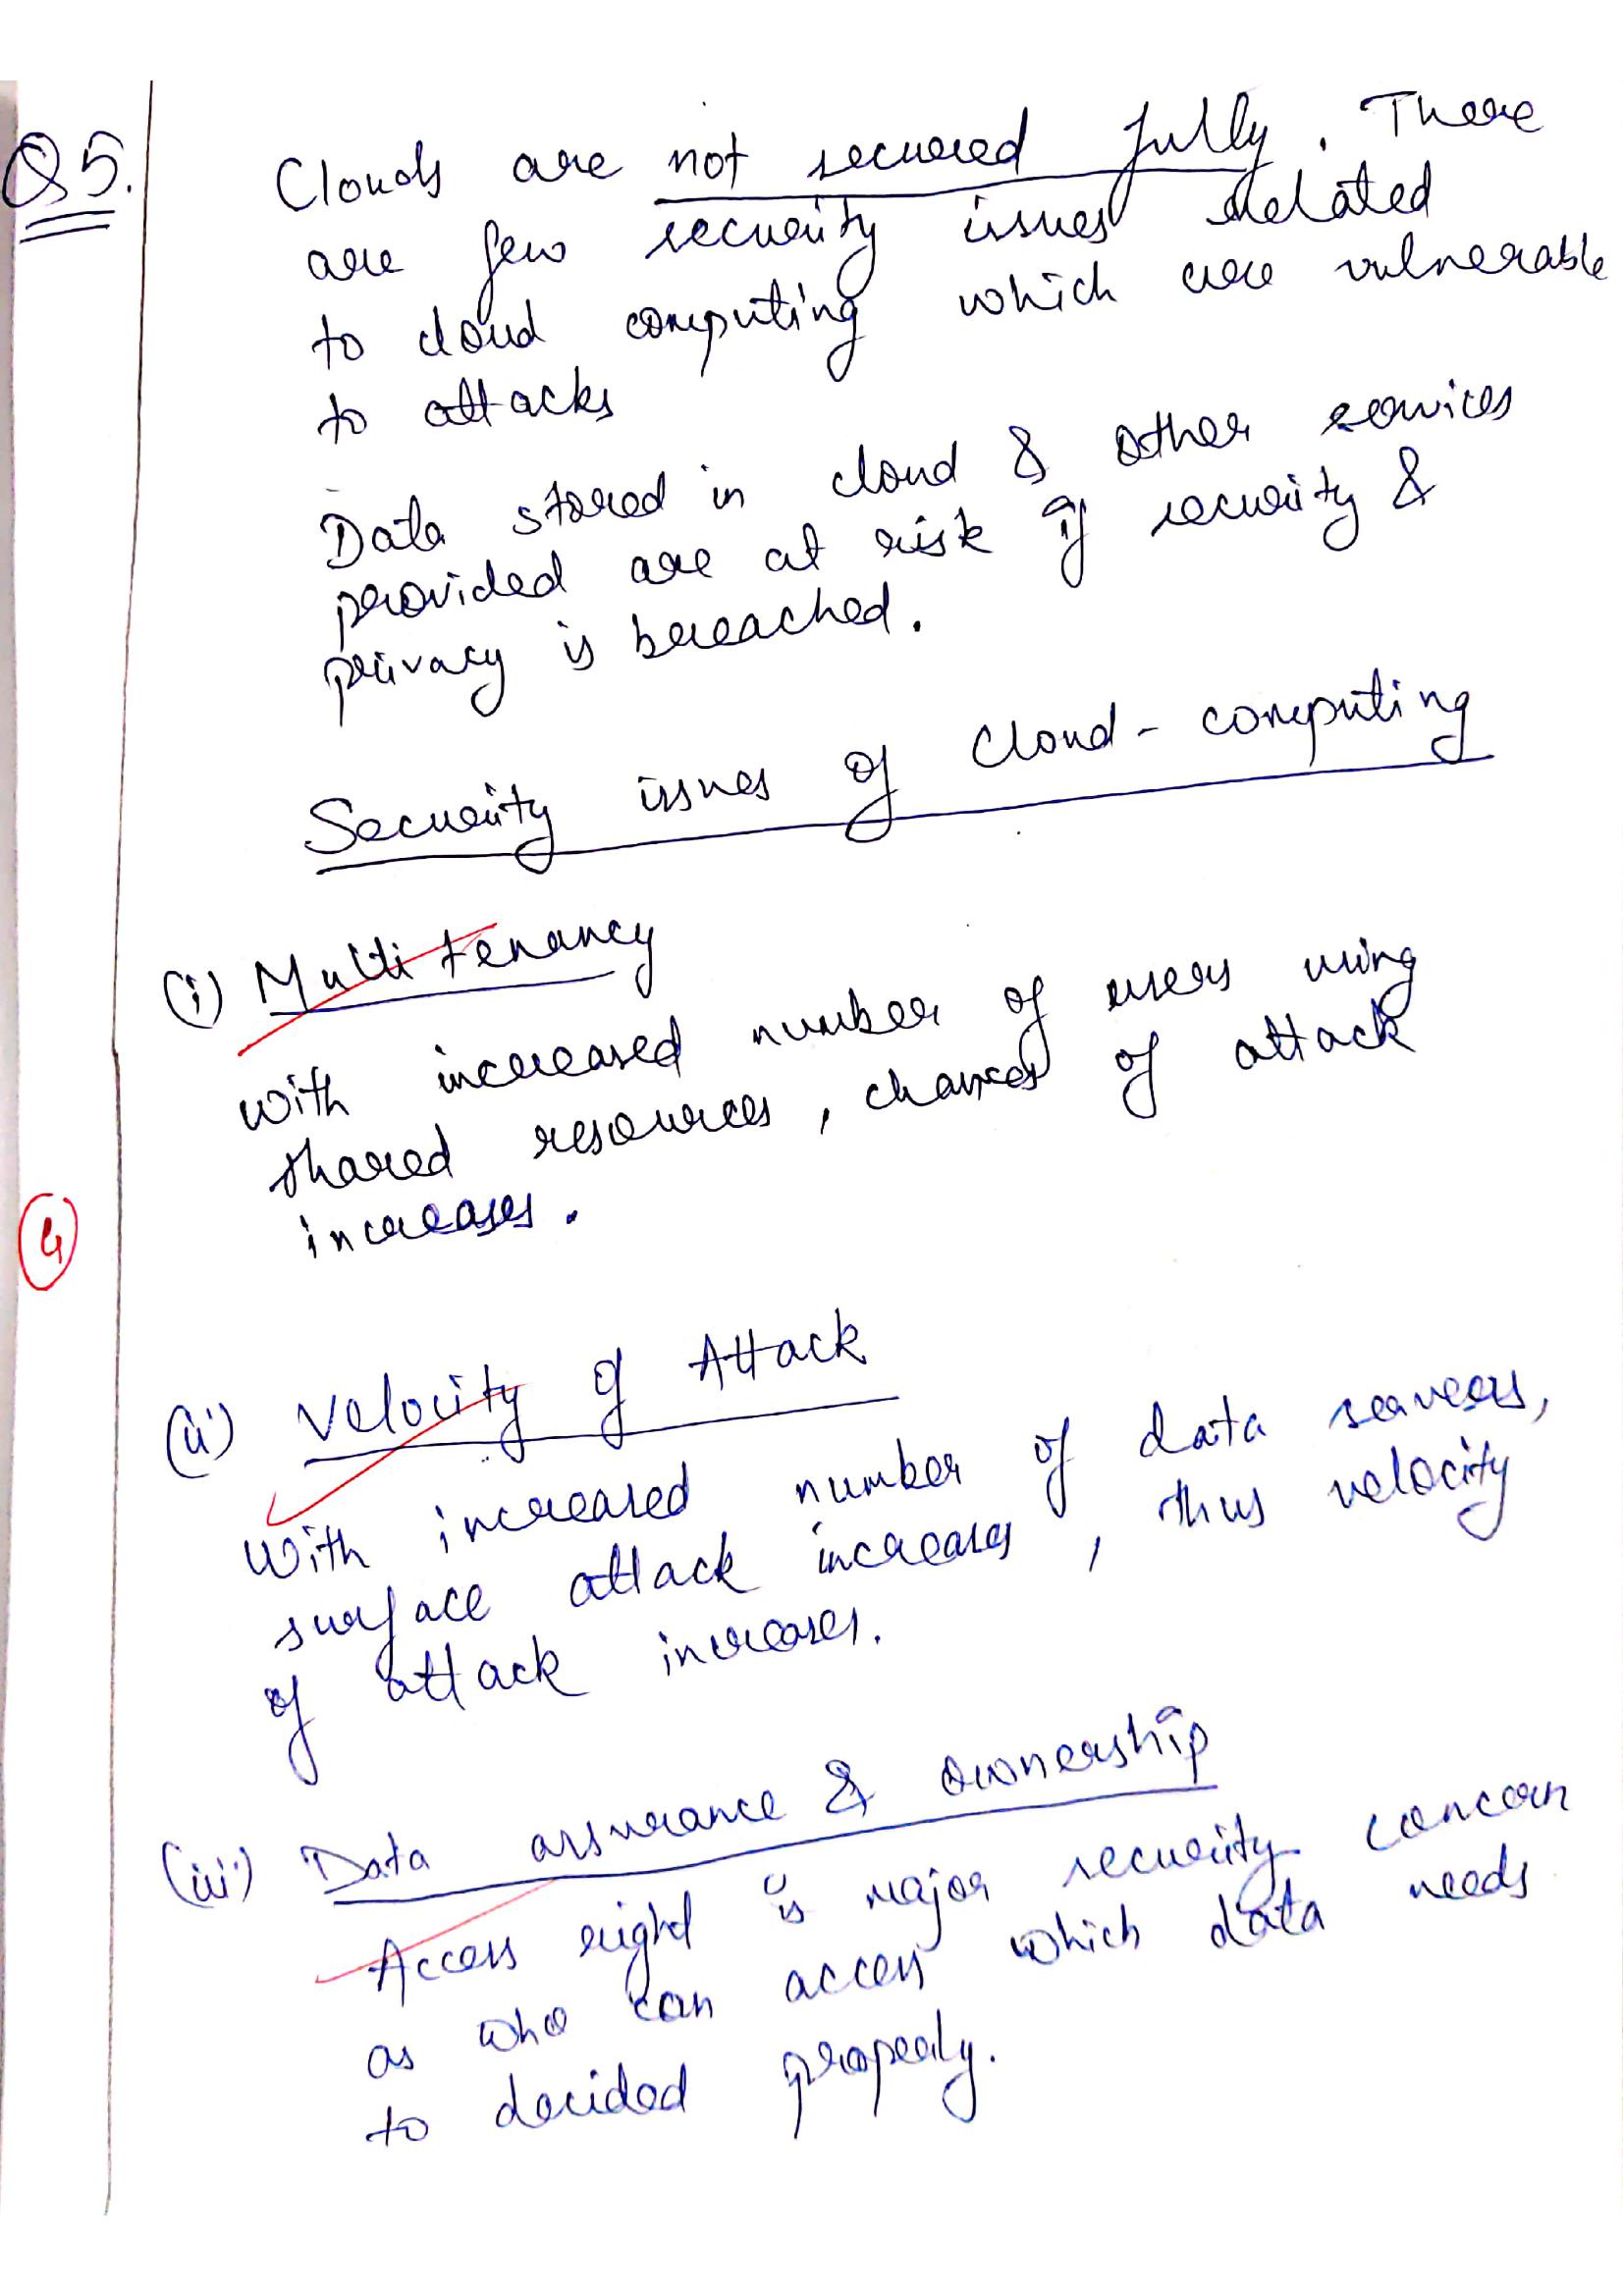 Q5.
Clouds are not secured fully. There
are few security issues related
to cloud computing which are vulnerable
to attacks
Data stored in cloud & other services
provided are at risk if security &
privacy is breached.
Security issues of Cloud-computing
(i) Multi tenancy
With increased number of users using
shared resources, chances of attack
increases.
4
(ii) Velocity of Attack
With increased number of data servers,
surface attack increases, thus velocity
of attack increases.
(iii) Data assurance & ownership
Access right is major security concern
as who can access which data needs
to decided properly.